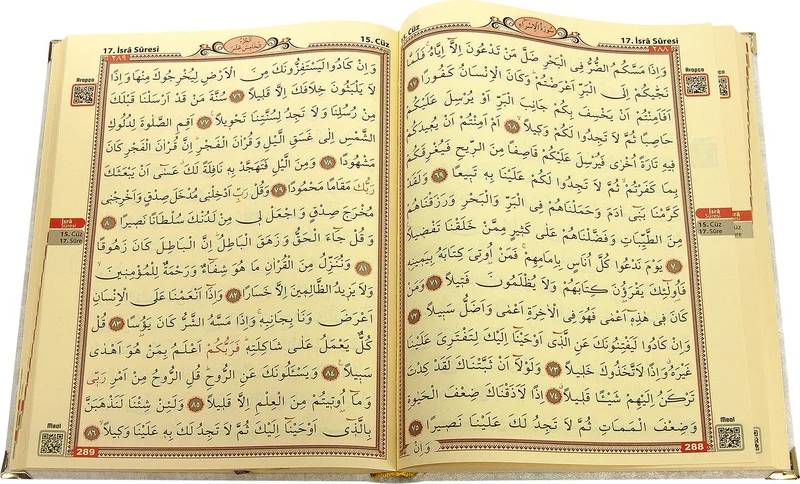 15. Cüz
17. İsrâ Sûresi
سُورَةُ الْاِسْرَاءِ
٢٨٨
وَاِذَا مَسَّكُمُ الضُّرُّ فِي الْبَحْرِ ضَلَّ مَنْ تَدْعُونَ اِلَّٓا اِيَّاهُۚ فَلَمَّا
نَجّٰيكُمْ اِلَى الْبَرِّ اَعْرَضْتُمْۜ وَكَانَ الْاِنْسَانُ كَفُورًا ٦٧
اَفَاَمِنْتُمْ اَنْ يَخْسِفَ بِكُمْ جَانِبَ الْبَرِّ اَوْ يُرْسِلَ عَلَيْكُمْ
حَاصِبًا ثُمَّ لَا تَجِدُوا لَكُمْ وَكِيلًاۙ ٦٨ اَمْ اَمِنْتُمْ اَنْ يُعِيدَكُمْ
فِيهِ تَارَةً اُخْرٰى فَيُرْسِلَ عَلَيْكُمْ قَاصِفًا مِنَ الرِّيحِ فَيُغْرِقَكُمْ
بِمَا كَفَرْتُمْۙ ثُمَّ لَا تَجِدُوا لَكُمْ عَلَيْنَا بِهٖ تَبِيعًا ٦٩ وَلَقَدْ
كَرَّمْنَا بَنٖٓي اٰدَمَ وَحَمَلْنَاهُمْ فِي الْبَرِّ وَالْبَحْرِ وَرَزَقْنَاهُمْ
مِنَ الطَّيِّبَاتِ وَفَضَّلْنَاهُمْ عَلٰى كَثٖيرٍ مِمَّنْ خَلَقْنَا تَفْضٖيلًا
٧٠ يَوْمَ نَدْعُوا كُلَّ اُنَاسٍ بِاِمَامِهِمْۚ فَمَنْ اُو۫تِيَ كِتَابَهُ بِيَمٖينِهٖ
فَاُو۬لٰٓئِكَ يَقْرَؤُ۫نَ كِتَابَهُمْ وَلَا يُظْلَمُونَ فَتٖيلًا ٧١ وَمَنْ
كَانَ فٖي هٰذِهٖٓ اَعْمٰى فَهُوَ فِي الْاٰخِرَةِ اَعْمٰى وَاَضَلُّ سَبٖيلًا ٧٢
وَاِنْ كَادُوا لَيَفْتِنُونَكَ عَنِ الَّذٖٓي اَوْحَيْنَٓا اِلَيْكَ لِتَفْتَرِيَ عَلَيْنَا
غَيْرَهُۗ وَاِذًا لَاتَّخَذُوكَ خَلٖيلًا ٧٣ وَلَوْلَٓا اَنْ ثَبَّتْنَاكَ لَقَدْ كِدْتَ
تَرْكَنُ اِلَيْهِمْ شَيْـًٔا قَلٖيلًاۗ ٧٤ اِذًا لَاَذَقْنَاكَ ضِعْفَ الْحَيٰوةِ
وَضِعْفَ الْمَمَاتِ ثُمَّ لَا تَجِدُ لَكَ عَلَيْنَا نَصٖيرًا ٧٥
وَاِنْ
288
Arapça
İsrâ
SÛRESİ
15. Cüz
17. Sûre
Meal
17. İsrâ Sûresi
15. Cüz
٢٨٩
وَاِنْ كَادُوا لَيَسْتَفِزُّونَكَ مِنَ الْاَرْضِ لِيُخْرِجُوكَ مِنْهَا وَاِذًا
لَا يَلْبَثُونَ خِلَافَكَ اِلَّا قَلٖيلًا ٧٦ سُنَّةَ مَنْ قَدْ اَرْسَلْنَا قَبْلَكَ
مِنْ رُسُلِنَا وَلَا تَجِدُ لِسُنَّتِنَا تَحْوٖيلًا۟ ٧٧ اَقِمِ الصَّلٰوةَ لِدُلُوكِ
الشَّمْسِ اِلٰى غَسَقِ الَّيْلِ وَقُرْاٰنَ الْفَجْرِۜ اِنَّ قُرْاٰنَ الْفَجْرِ كَانَ
مَشْهُودًا ٧٨ وَمِنَ الَّيْلِ فَتَهَجَّدْ بِهٖ نَافِلَةً لَكَۗ عَسٰٓى اَنْ يَبْعَثَكَ
رَبُّكَ مَقَامًا مَحْمُودًا ٧٩ وَقُلْ رَبِّ اَدْخِلْنٖي مُدْخَلَ صِدْقٍ وَاَخْرِجْنٖي
مُخْرَجَ صِدْقٍ وَاجْعَلْ لٖي مِنْ لَدُنْكَ سُلْطَانًا نَصٖيرًا ٨٠
وَقُلْ جَٓاءَ الْحَقُّ وَزَهَقَ الْبَاطِلُۜ اِنَّ الْبَاطِلَ كَانَ زَهُوقًا
٨١ وَنُنَزِّلُ مِنَ الْقُرْاٰنِ مَا هُوَ شِفَٓاءٌ وَرَحْمَةٌ لِلْمُؤْمِنٖينَۙ
وَلَا يَزٖيدُ الظَّالِمٖينَ اِلَّا خَسَارًا ٨٢ وَاِذَٓا اَنْعَمْنَا عَلَى الْاِنْسَانِ
اَعْرَضَ وَنَاٰ بِجَانِبِهٖۚ وَاِذَا مَسَّهُ الشَّرُّ كَانَ يَؤُ۫سًا ٨٣ قُلْ
كُلٌّ يَعْمَلُ عَلٰى شَاكِلَتِهٖۜ فَرَبُّكُمْ اَعْلَمُ بِمَنْ هُوَ اَهْدٰى
سَبٖيلًا۟ ٨٤ وَيَسْـَٔلُونَكَ عَنِ الرُّوحِۜ قُلِ الرُّوحُ مِنْ اَمْرِ رَبّٖي
وَمَٓا اُو۫تٖيتُمْ مِنَ الْعِلْمِ اِلَّا قَلٖيلًا ٨٥ وَلَئِنْ شِئْنَا لَنَذْهَبَنَّ
بِالَّذٖٓي اَوْحَيْنَٓا اِلَيْكَ ثُمَّ لَا تَجِدُ لَكَ بِهٖ عَلَيْنَا وَكٖيلًاۙ ٨٦
289
Arapça
İsrâ
SÛRESİ
15. Cüz
17. Sûre
Meal